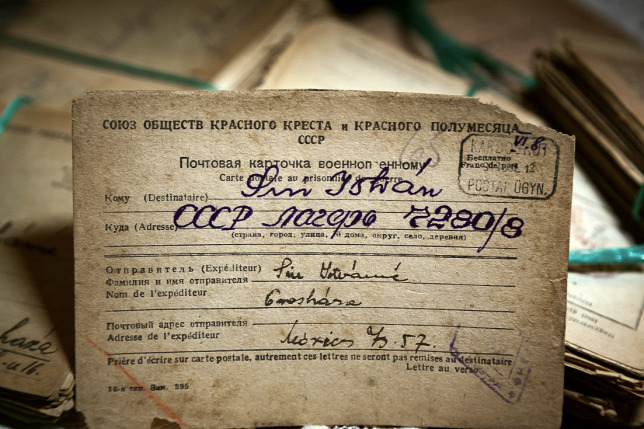 СОЮЗ ОБЩЕСТВ КРАСНОГО КРЕСТА и КРАСНОГО ПОЛУМЕСЯЦА
СССР
VI. 8.
Почтовая карточка военнопленному
Carte postale au prisonnier de guerre
Бесплатно
Franc de port
12
POSTAI ÜGYN.
Кому (Destinataire) Sin István
Куда (Adresse) СССР лагерь 7280/8
(страна, город, улица, № дома, округ, село, деревня)
Отправитель (Expéditeur) Sin Istvánné
Фамилия и имя отправителя
Nom de l'expéditeur
Почтовый адрес отправителя
Adresse de l'expéditeur Móricz Zs. 57.
Prière d'écrire sur carte postale, autrement ces lettres ne seront pas remises au destinataire
Lettre au verso.
16-я тип. Зак. 595